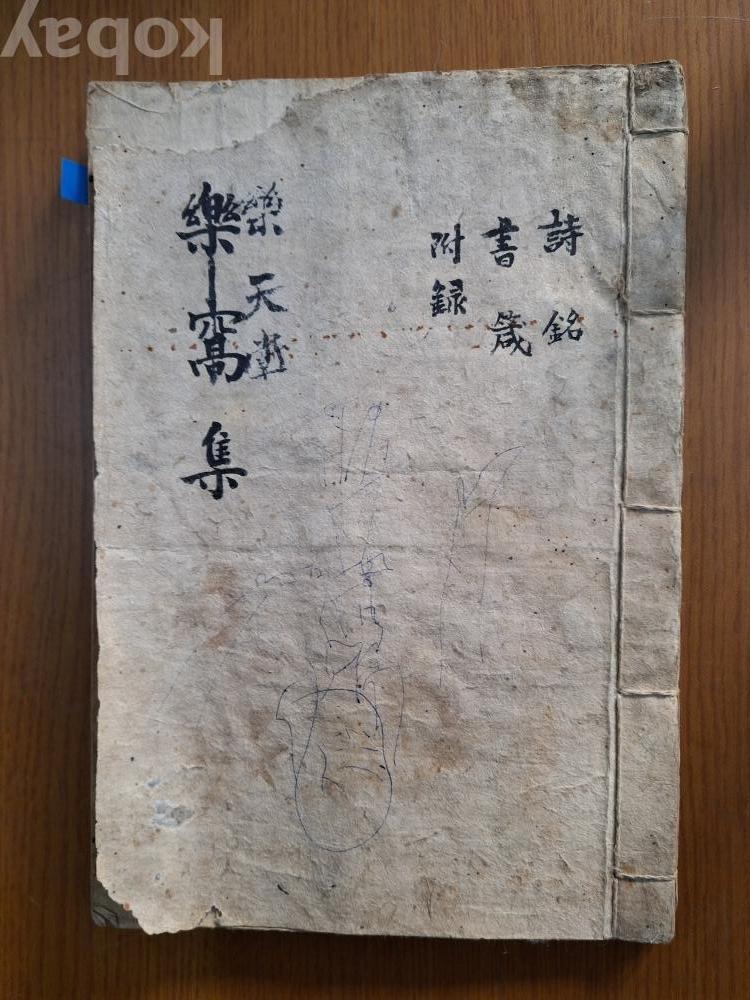 kobay
詩 銘
書 箴
附録
樂天
樂窩集